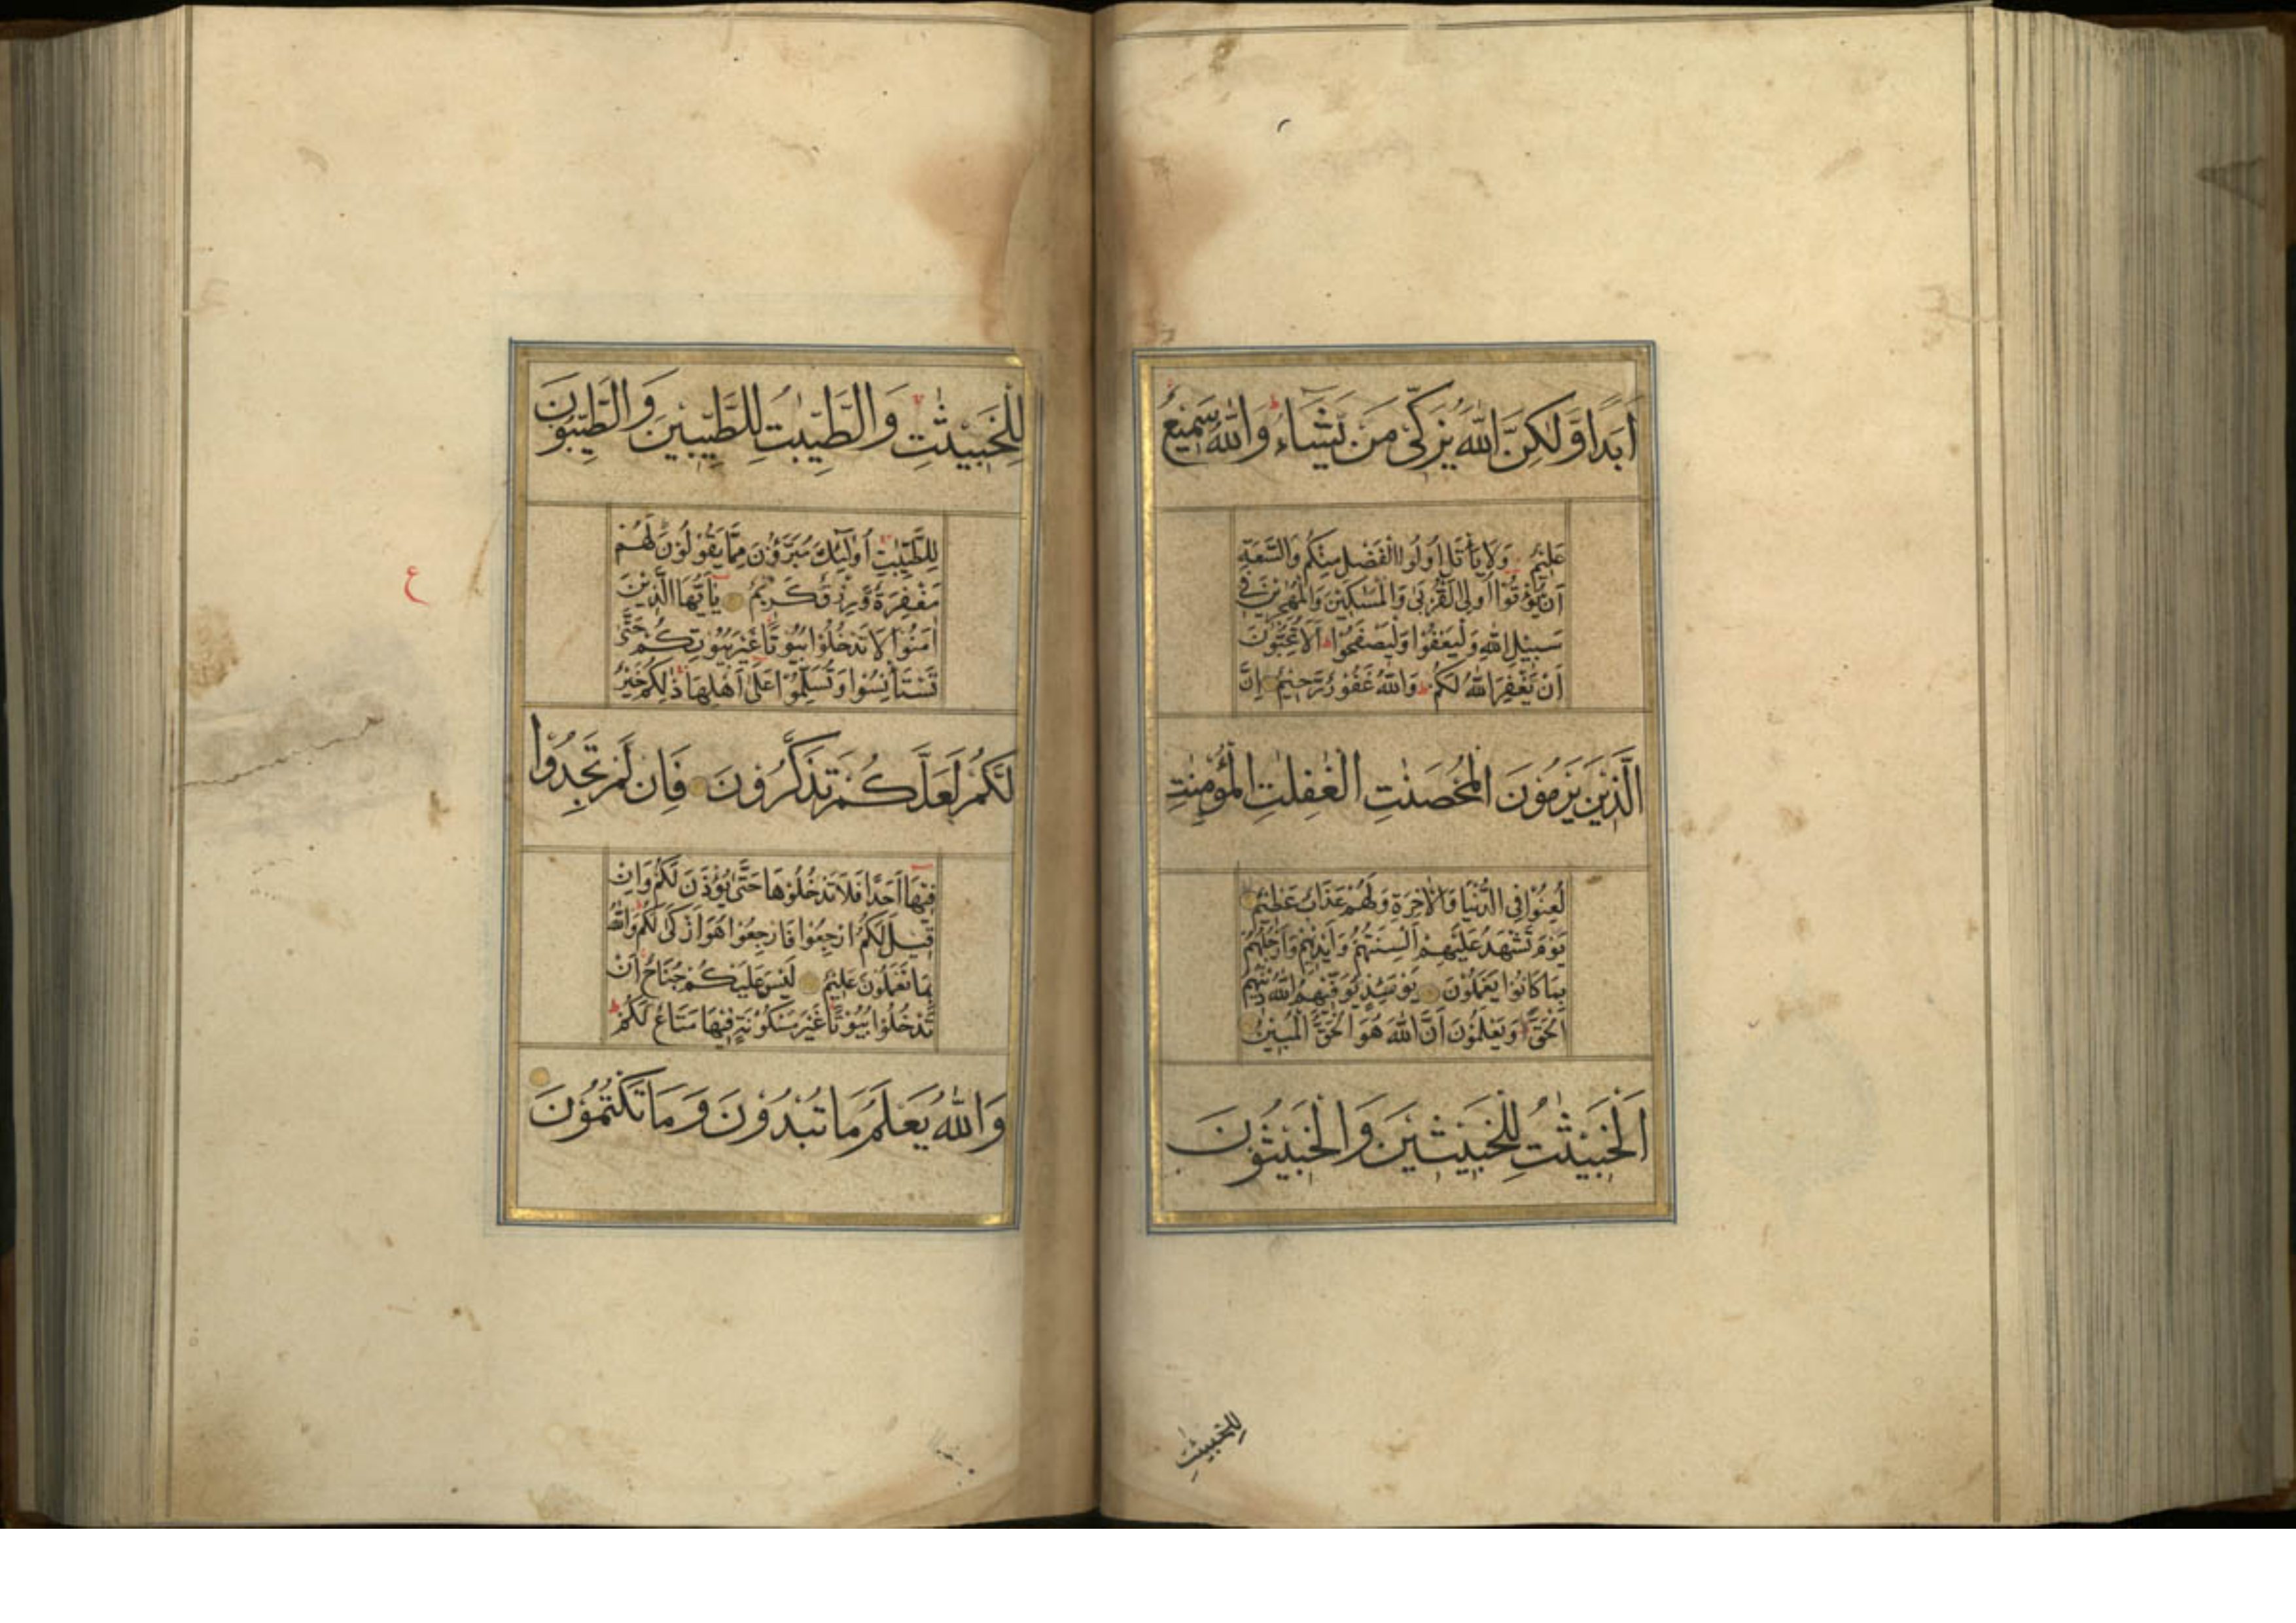 اَبَدًا وَّلٰكِنَّ اللّٰهَ يُزَكِّىْ مَنْ يَّشَآءُ ط وَاللّٰهُ سَمِيْعٌ
عَلِيْمٌ وَلَا يَاْتَلِ اُولُوا الْفَضْلِ مِنْكُمْ وَالسَّعَةِ
اَنْ يُّؤْتُوْٓا اُولِى الْقُرْبٰى وَالْمَسٰكِيْنَ وَالْمُهٰجِرِيْنَ فِىْ
سَبِيْلِ اللّٰهِ وَلْيَعْفُوْا وَلْيَصْفَحُوْا ط اَلَا تُحِبُّوْنَ
اَنْ يَّغْفِرَ اللّٰهُ لَكُمْ ط وَاللّٰهُ غَفُوْرٌ رَّحِيْمٌ اِنَّ
الَّذِيْنَ يَرْمُوْنَ الْمُحْصَنٰتِ الْغٰفِلٰتِ الْمُؤْمِنٰتِ
لُعِنُوْا فِى الدُّنْيَا وَالْاٰخِرَةِ وَلَهُمْ عَذَابٌ عَظِيْمٌ
يَوْمَ تَشْهَدُ عَلَيْهِمْ اَلْسِنَتُهُمْ وَاَيْدِيْهِمْ وَاَرْجُلُهُمْ
بِمَا كَانُوْا يَعْمَلُوْنَ يَوْمَئِذٍ يُّوَفِّيْهِمُ اللّٰهُ دِيْنَهُمُ
الْحَقَّ وَيَعْلَمُوْنَ اَنَّ اللّٰهَ هُوَ الْحَقُّ الْمُبِيْنُ
اَلْخَبِيْثٰتُ لِلْخَبِيْثِيْنَ وَالْخَبِيْثُوْنَ
لِلْخَبِيْثٰتِ
لِلْخَبِيْثٰتِ وَالطَّيِّبٰتُ لِلطَّيِّبِيْنَ وَالطَّيِّبُوْنَ
لِلطَّيِّبٰتِ اُولٰٓئِكَ مُبَرَّءُوْنَ مِمَّا يَقُوْلُوْنَ لَهُمْ
مَّغْفِرَةٌ وَّرِزْقٌ كَرِيْمٌ يٰٓاَيُّهَا الَّذِيْنَ
ع
اٰمَنُوْا لَا تَدْخُلُوْا بُيُوْتًا غَيْرَ بُيُوْتِكُمْ حَتّٰى
تَسْتَاْنِسُوْا وَتُسَلِّمُوْا عَلٰٓى اَهْلِهَا ذٰلِكُمْ خَيْرٌ
لَّكُمْ لَعَلَّكُمْ تَذَكَّرُوْنَ فَاِنْ لَّمْ تَجِدُوْا
فِيْهَآ اَحَدًا فَلَا تَدْخُلُوْهَا حَتّٰى يُؤْذَنَ لَكُمْ وَاِنْ
قِيْلَ لَكُمُ ارْجِعُوْا فَارْجِعُوْا هُوَ اَزْكٰى لَكُمْ وَاللّٰهُ
بِمَا تَعْمَلُوْنَ عَلِيْمٌ لَيْسَ عَلَيْكُمْ جُنَاحٌ اَنْ
تَدْخُلُوْا بُيُوْتًا غَيْرَ مَسْكُوْنَةٍ فِيْهَا مَتَاعٌ لَّكُمْ ط
وَاللّٰهُ يَعْلَمُ مَا تُبْدُوْنَ وَمَا تَكْتُمُوْنَ